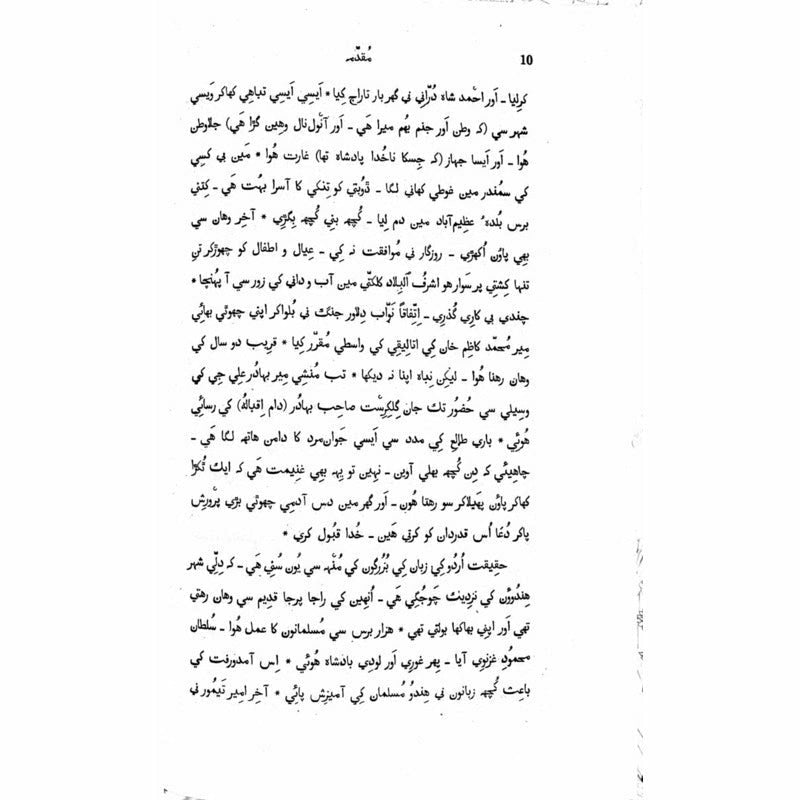 10 مُقدّمہ
کرلیا ـ اَور احمد شاہ دُرّانی نی گھر بار تاراج کِیا * اَیسی اَیسی تباہی کھاکر وَیسی
شہر سی (کہ وطن اَور جنم بھُم میرا ھَی ـ اَور آنول نال وھین گڑا ھَی) جلاوطن
ھُوا ـ اَور اَیسا جہاز (کہ جِسکا ناخُدا پادشاہ تھا) غارت ھُوا * مَین بی کسی
کی سمُندر مین غوطی کھانی لگا ـ ڈوبتی کو تِنکی کا آسرا بہُت ھَی ـ کِتنی
برس بُلدہٴ عظیم‌آباد مین دم لِیا ـ کُچھ بنی کُچھ بِگڑی * آخِر وھان سی
بھی پاوُن اُکھڑی ـ روزگار نی مُوافقت نہ کی ـ عِیال و اطفال کو چھوڑکر تنِ
تنہا کِشتی پر سَوار ھو اشرفُ اَلبِلاد کلکتّی مین آب و دانی کی زور سی آ پہُنچا *
چندی بی کاری گُذری ـ اِتِّفاقًا نَوّاب دِلاور جنگ نی بُلواکر اپنی چھوٹی بھائی
مِیر مُحمّد کاظِم خان کی اتالیقی کی واسطی مُقرّر کِیا * قریب دو سال کی
وھان رھنا ھُوا ـ لیکِن نِباہ اپنا نہ دیکھا * تب مُنشی مِیر بہادُر علی جی کی
وسیلی سی حُضُور تک جان گِلکرِسٹ صاحِب بہادُر (دام اِقبالہُ) کی رسائی
ھُوئی * باری طالِع کی مدد سی اَیسی جَوان‌مرد کا دامن ھاتھ لگا ھَی ـ
چاھیئی کہ دِن کُچھ بھلی آوین ـ نہین تو یِہ بھی غنِیمت ھَی کہ ایک ٹُکڑا
کھاکر پاوُن پھَیلاکر سو رھتا ھُون ـ اَور گھر مین دس آدمی چھوٹی بڑی پرورِش
پاکر دُعا اُس قدردان کو کرتی ھَین ـ خُدا قبُول کری *
حقیقت اُردُو کی زبان کی بُزُرگون کی مُنہہ سی یُون سُنی ھَی ـ کہ دِلّی شہر
ھِندُووُن کی نزدِیک چَوجُگی ھَی ـ اُنھین کی راجا پرجا قدیم سی وھان رھتی
تھی اَور اپنی بھاکھا بولتی تھی * ھزار برس سی مُسلمانون کا عمل ھُوا ـ سُلطان
محمودِ غزنوی آیا ـ پھِر غوری اَور لودی بادشاہ ھُوئی * اِس آمدورفت کی
باعِث کُچھ زبانون نی ھِندُو مُسلمان کی آمیزِش پائی * آخِر امِیر تَیمُور نی